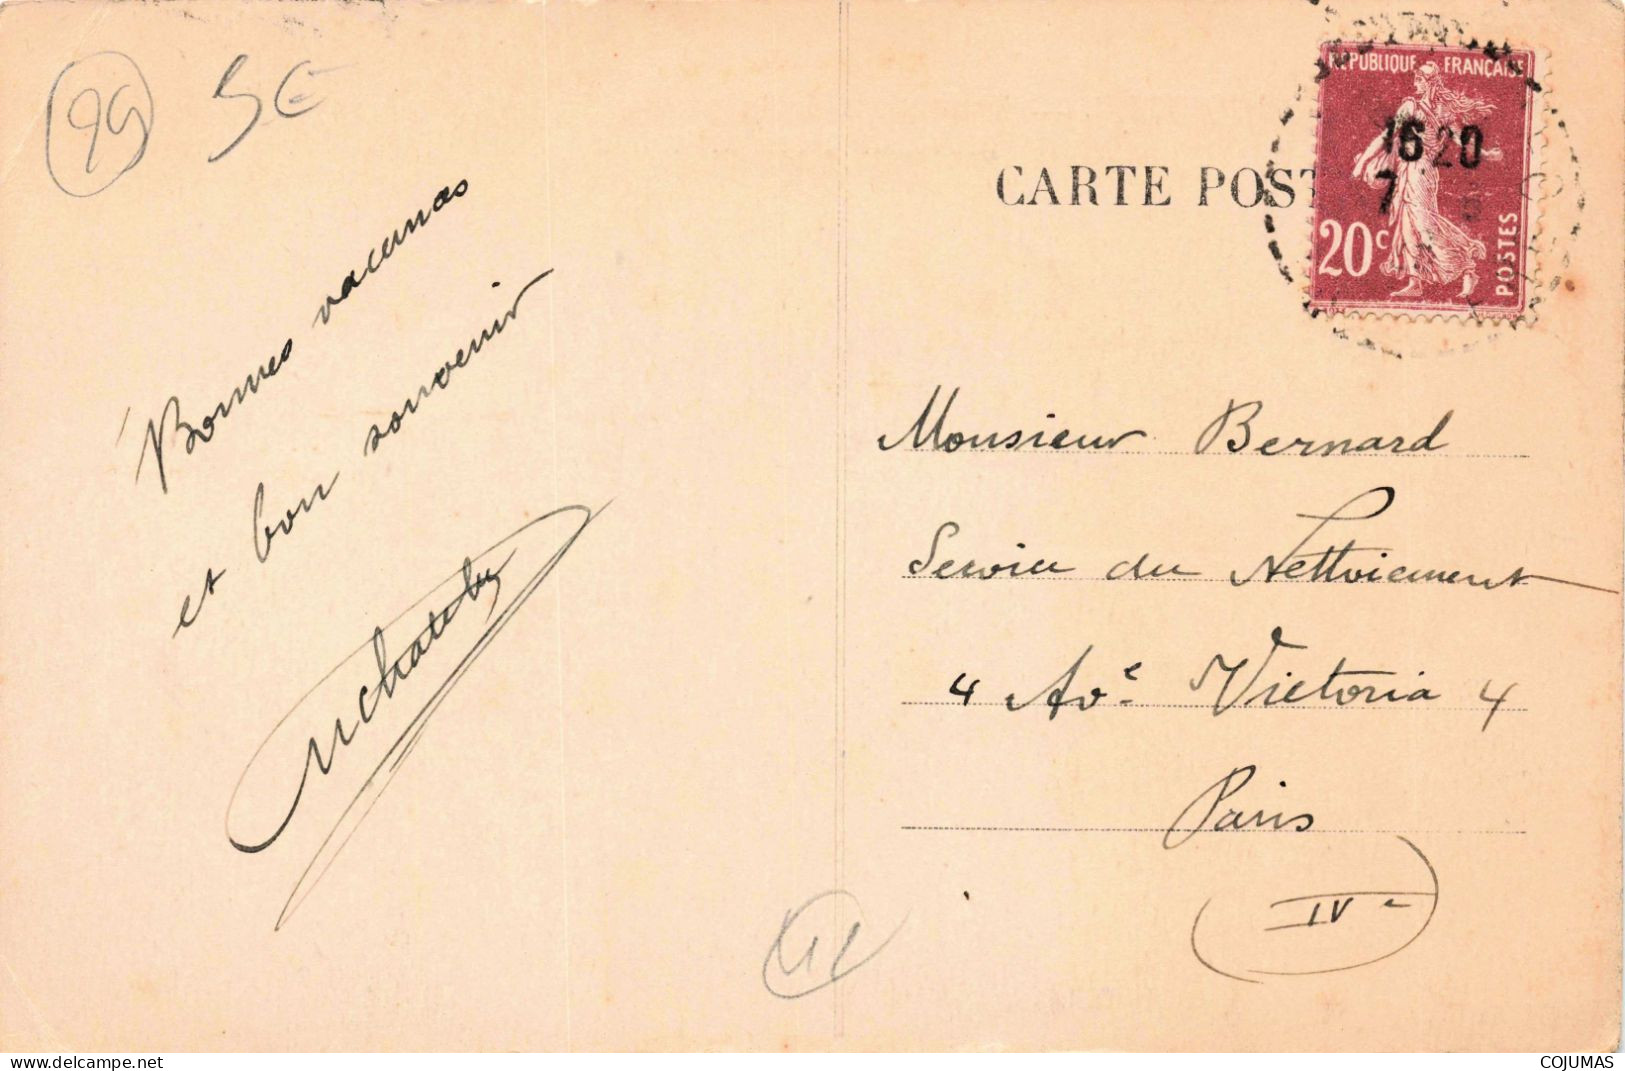 99
5€
RÉPUBLIQUE FRANÇAISE
16 20
7
20c
POSTES
CARTE POST
Bonnes vacances
et bon souvenir
Monsieur Bernard
Service du Nettoiement
4 Ave Victoria 4
Paris
IVe
delcampe.net
COJUMAS